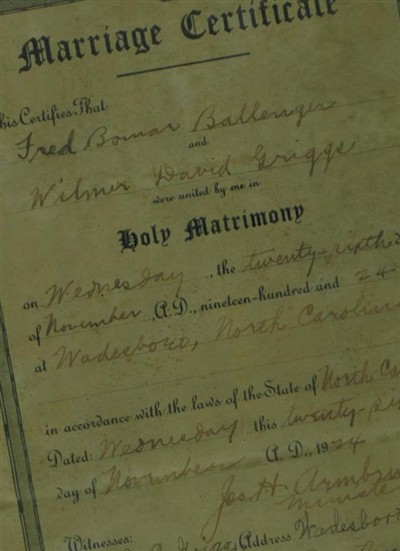 Marriage Certificate
his Certifies That
Fred Bomar Ballenger
and
Wilmer David Griggs
were united by me in
Holy Matrimony
on Wednesday, the twenty-sixth
of November, A.D., nineteen-hundred and 24
at Wadesboro, North Carolina
in accordance with the laws of the State of North Ca
Dated: Wednesday this twenty-si
day of November A. D., 1924
Jos. H. Armbr
Minister
Witnesses:
Address Wadesboro